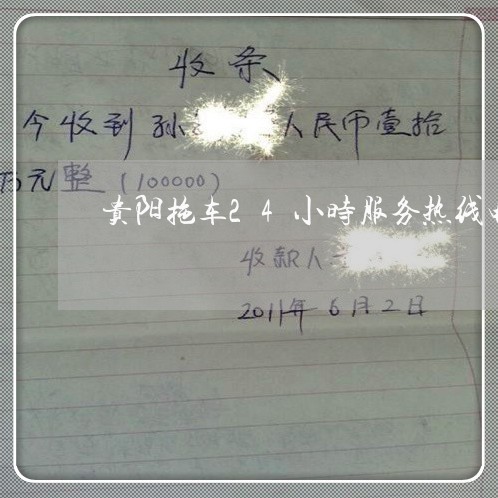 收条
今收到孙 人民币壹拾
万元整(100000)
贵阳拖车24小時服务热线
收款人
2011年6月2日